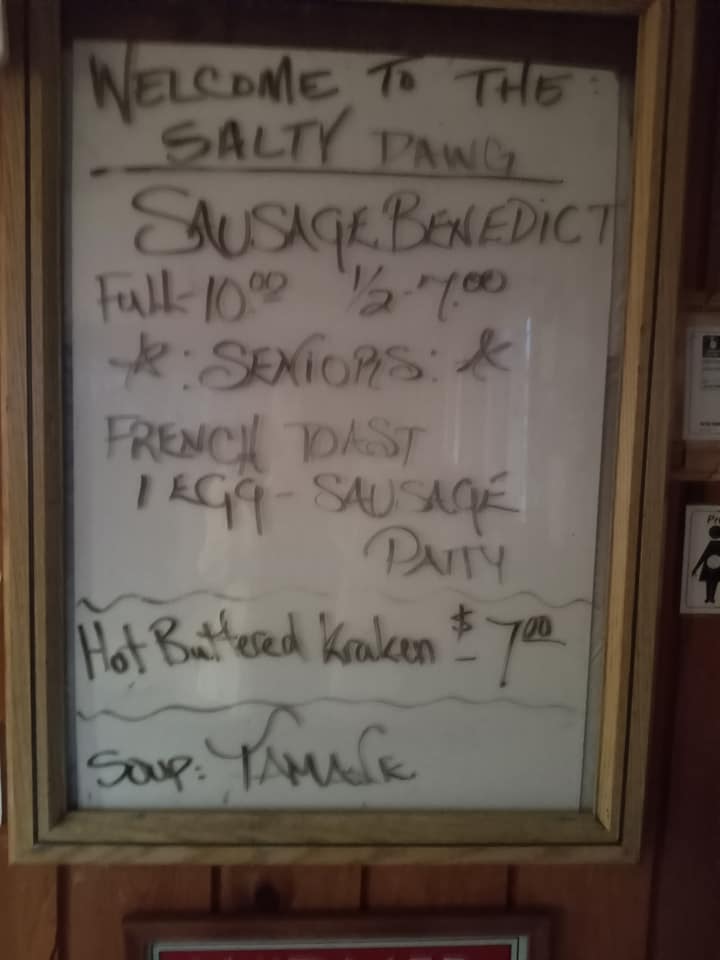 WELCOME TO THE:
SALTY DAWG
SAUSAGE BENEDICT
Full-10.00 1/2-7.00
☆: SENIORS: ☆
FRENCH TOAST
1 EGG - SAUSAGE
PATTY
Hot Buttered Kraken $7.00
SOUP: